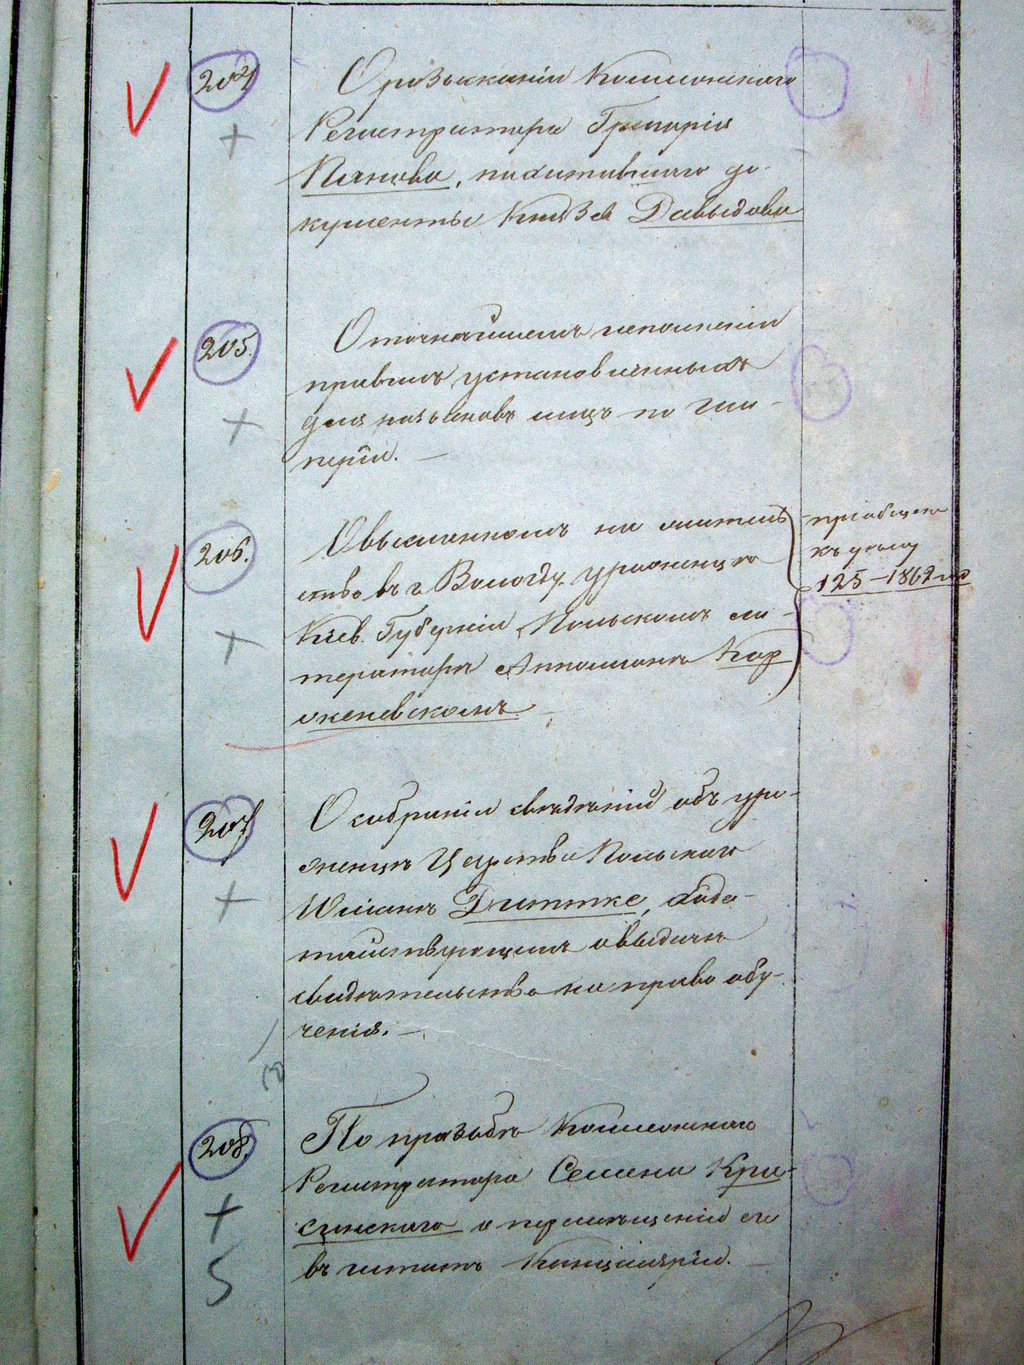 204
О розысканіи Коллежскаго
Регистратора Григорія
Панова, похитившаго до-
кументы Князя Давыдова
205.
О точнѣйшемъ исполненіи
правилъ установленныхъ
для розысковъ лицъ по Им-
періи. —
206.
О высланномъ на житель
ство въ г. Вологду уроженцѣ
Кіев. Губерніи, Польскомъ ли-
тераторѣ Апполлонѣ Кор
женевскомъ. —
пріобщено
къ дѣлу
125 – 1862 го
207.
О собраніи свѣдѣній объ уро-
женцѣ Царства Польскаго
Юліанѣ Диттке, хода-
тайствующемъ о выдачѣ
свидѣтельства на право обу-
ченія. —
208.
По прозьбѣ Коллежскаго
Регистратора Семена Кра-
синскаго о перемѣщеніи его
въ штатъ Канцеляріи. —
5